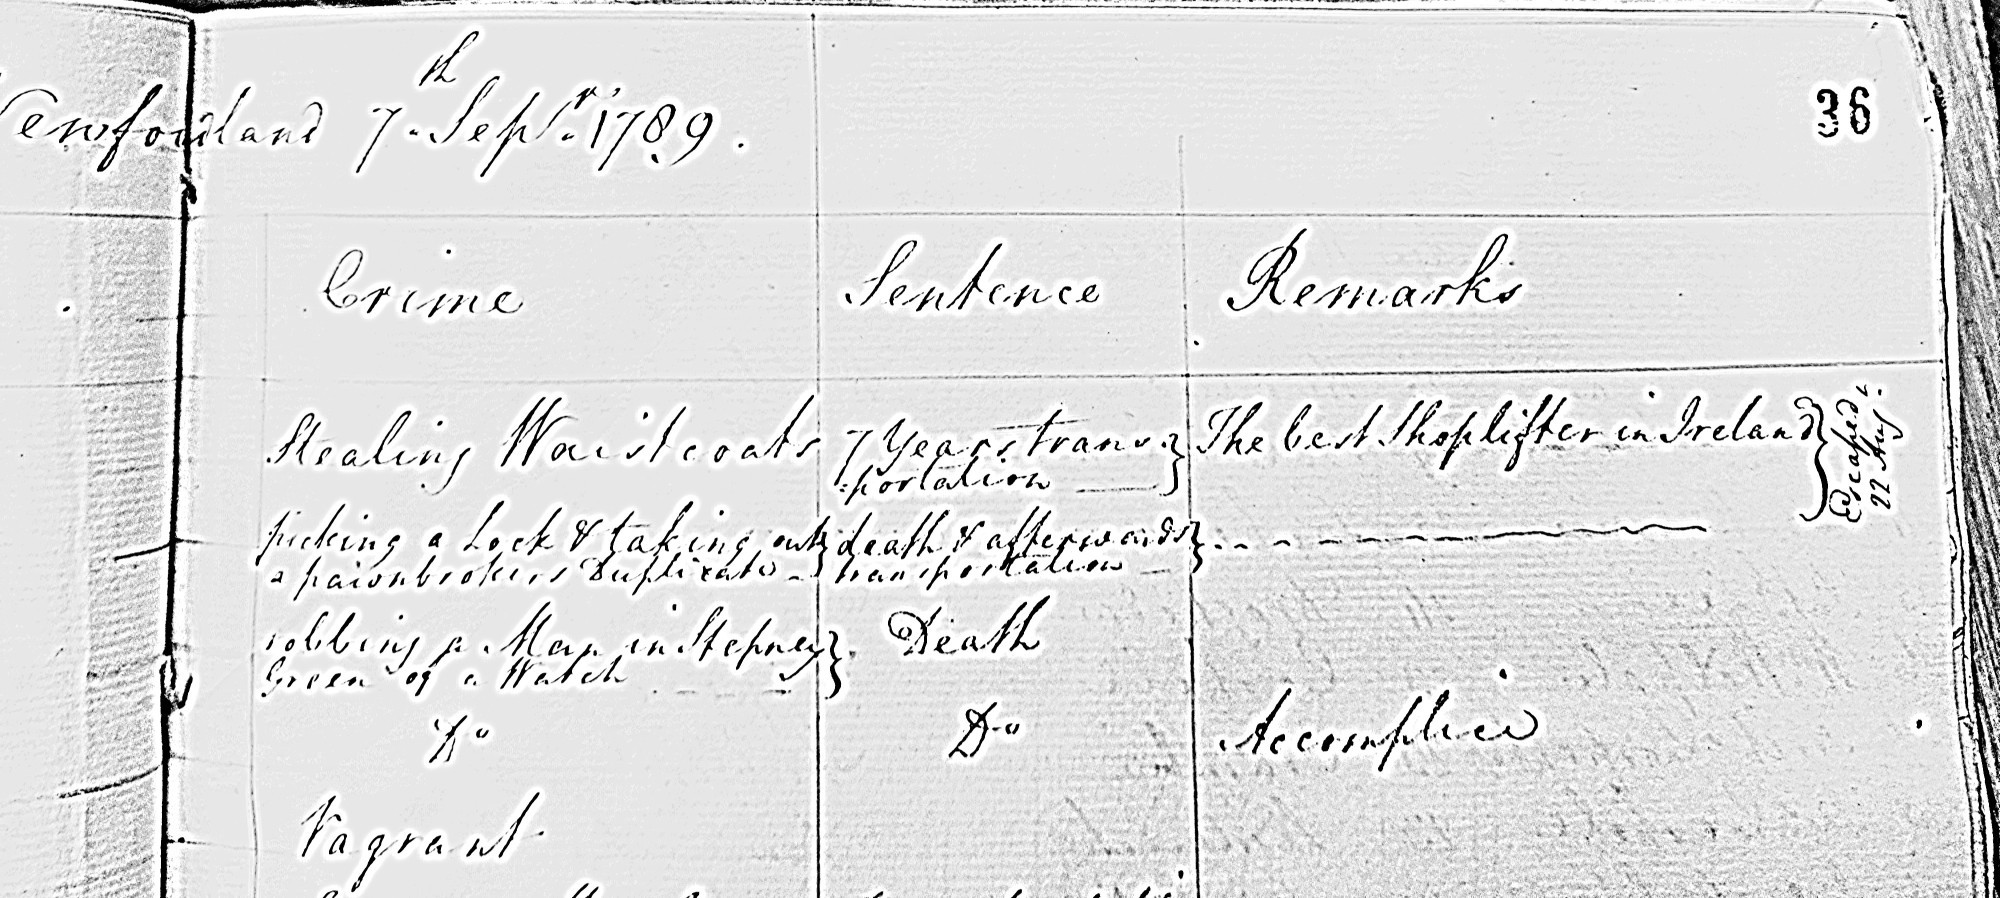 Newfoundland 7th Sepr. 1789.
36
Crime Sentence Remarks
Stealing Waistcoats 7 Years trans- The best Shoplifter in Ireland Escaped
-portation 22 Aug
picking a Lock & taking out death & afterwards
a pawnbrokers Duplicate transportation
robbing a Man in Stepney Death
Green of a Watch
Do Do Accomplice
Vagrant